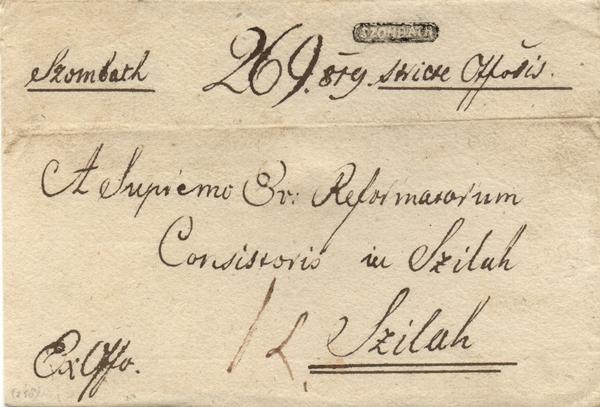 SZOMBATH
Szombath 269. 819. stricte Offosis.
A Supremo Ev: Reformatorum
Consistorio in Szilah
Szilah
Ex Offo.